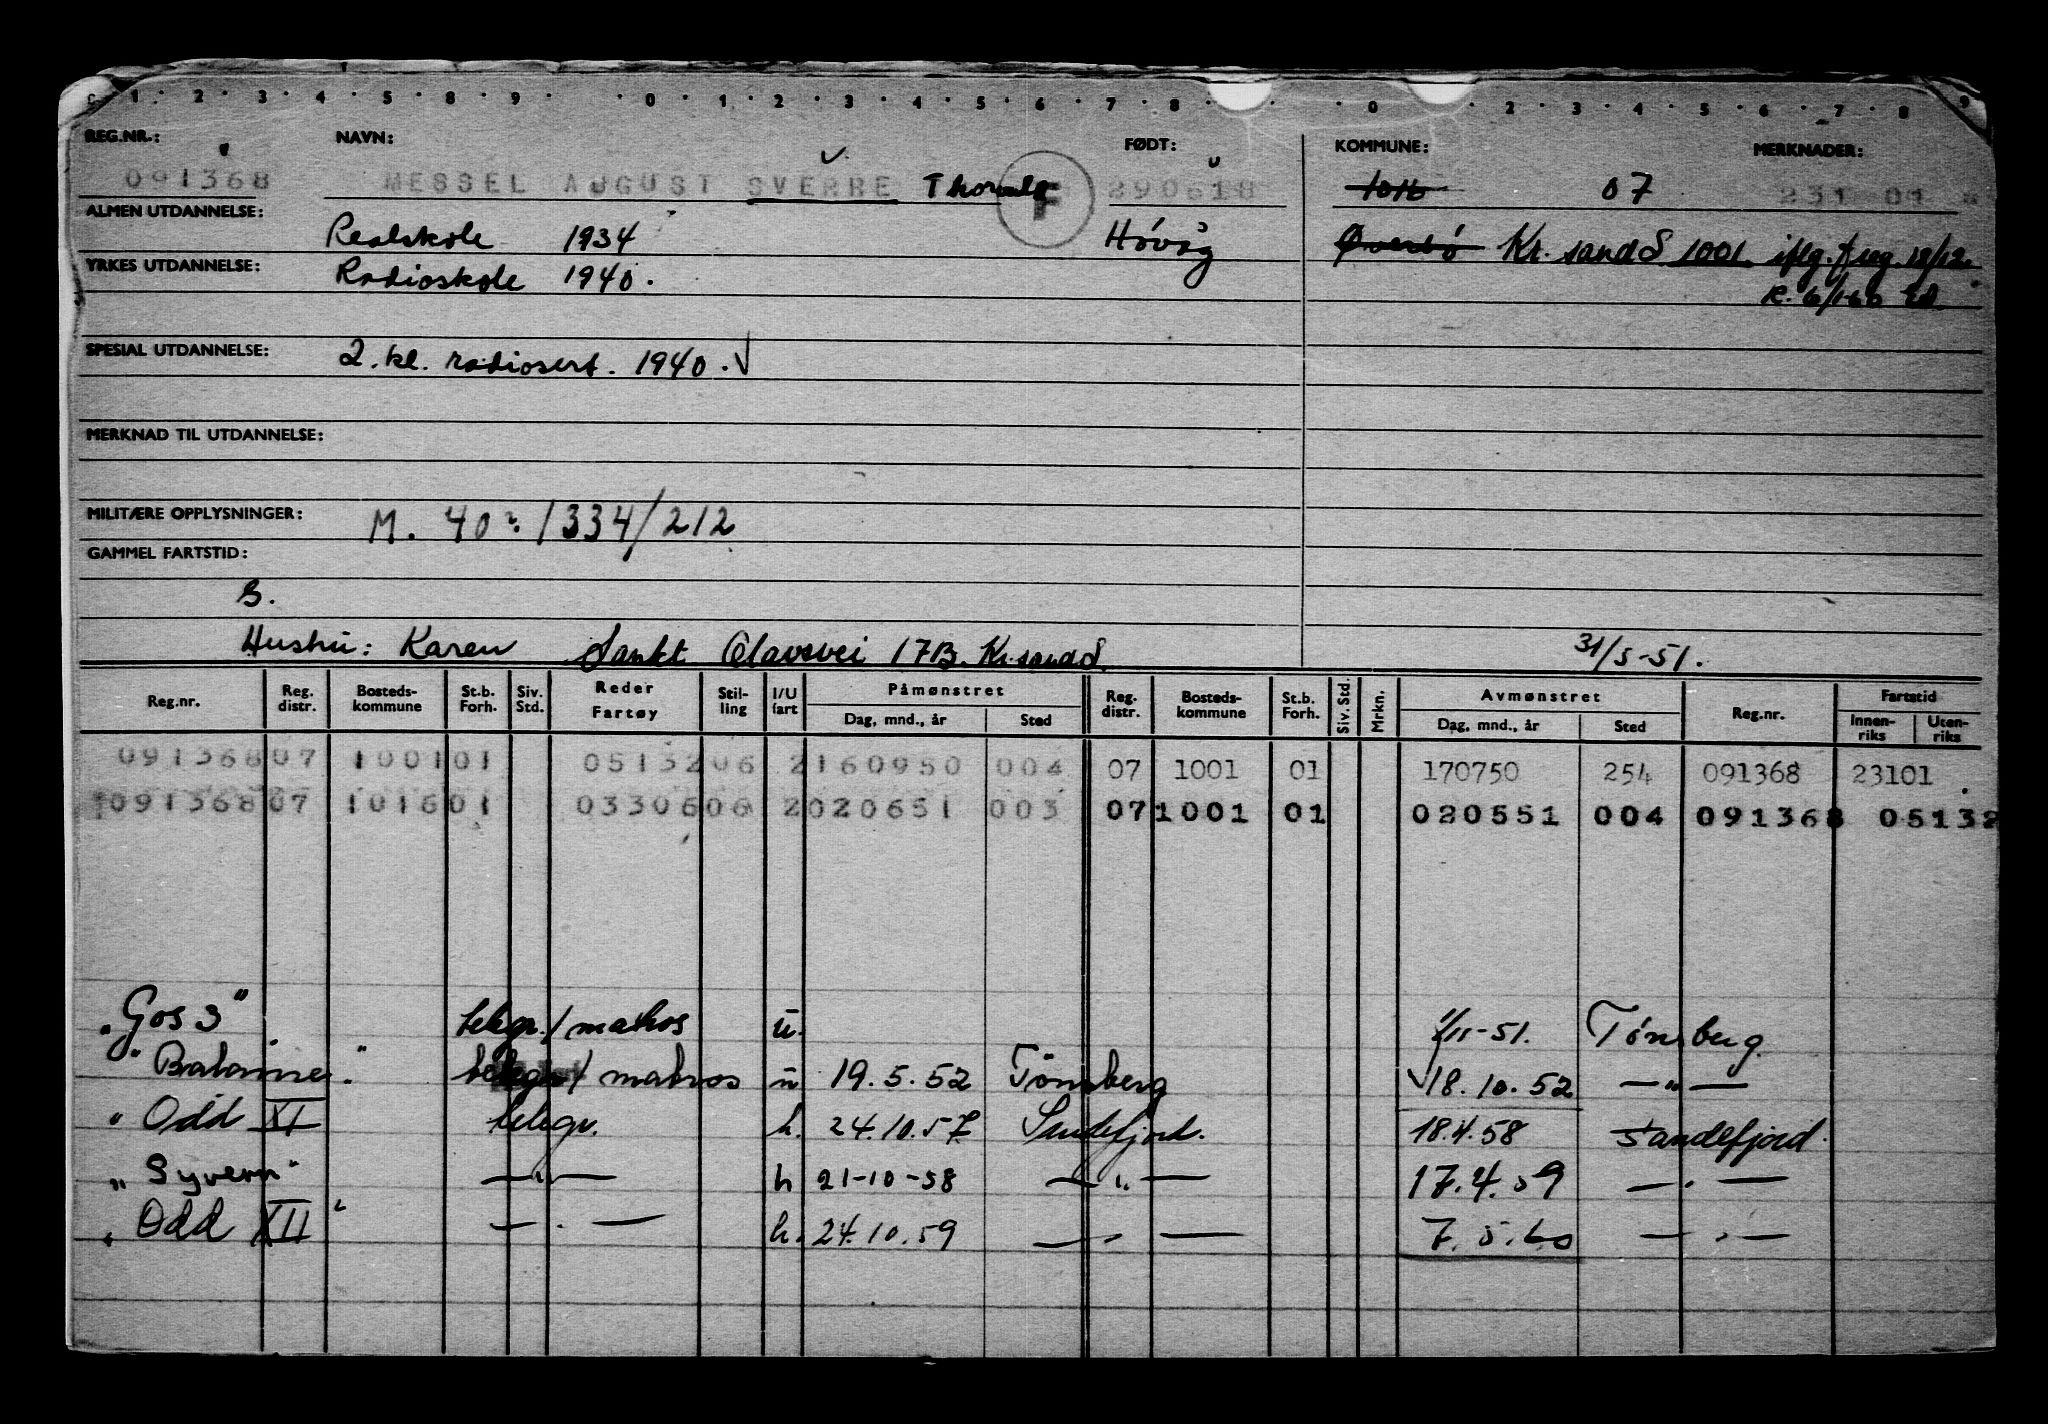 C 1 2 3 4 5 8 9 0 1 2 3 4 5 6 7 8 0 2 3 4 5 6 7 8 9
REG.NR.: NAVN: FØDT: KOMMUNE: MERKNADER:
091368 MESSEL AUGUST SVERRE F 290618 1016 07 231 01
ALMEN UTDANNELSE: Realskole 1934 Høvåg Øverbø Kr.sand S. 1001 iflg. 19/12
YRKES UTDANNELSE: Radioskole 1940.
SPESIAL UTDANNELSE: 2. kl. radiosert. 1940.
MERKNAD TIL UTDANNELSE:
MILITÆRE OPPLYSNINGER: M. 40: 1334/212
GAMMEL FARTSTID:
S.
Hustru: Karen Sankt Olavsvei 17B. Kr.sand S. 31/5-51.
Reg.nr. Reg. distr. Bosteds-kommune St.b. Forh. Siv. Std. Reder Fartøy Stil-ling I/U fart Påmønstret Reg. distr. Bosteds-kommune St.b. Forh. Siv. Std. Mrkn. Avmønstret Reg.nr. Fartstid
Dag, mnd., år Sted Dag, mnd., år Sted Innen-riks Uten-riks
091368 07 1001 01 05132 06 2 160950 004 07 1001 01 170750 254 091368 23101
091368 07 1016 01 03306 06 2 020651 003 07 1001 01 020551 004 091368 05132
"Gos 3" telegr./matros u. 1/11-51. Tønsberg
" " telegr/matros u 19.5.52 Tønsberg 18.10.52 — " —
" Odd XI telegr. h. 24.10.57 Sandefjord. 18.4.58 Sandefjord.
" Syvern" — " — h 21-10-58 — " — 17.4.59 — " —
" Odd XII " — " — h. 24.10.59 — " — 7.5.60 — " —